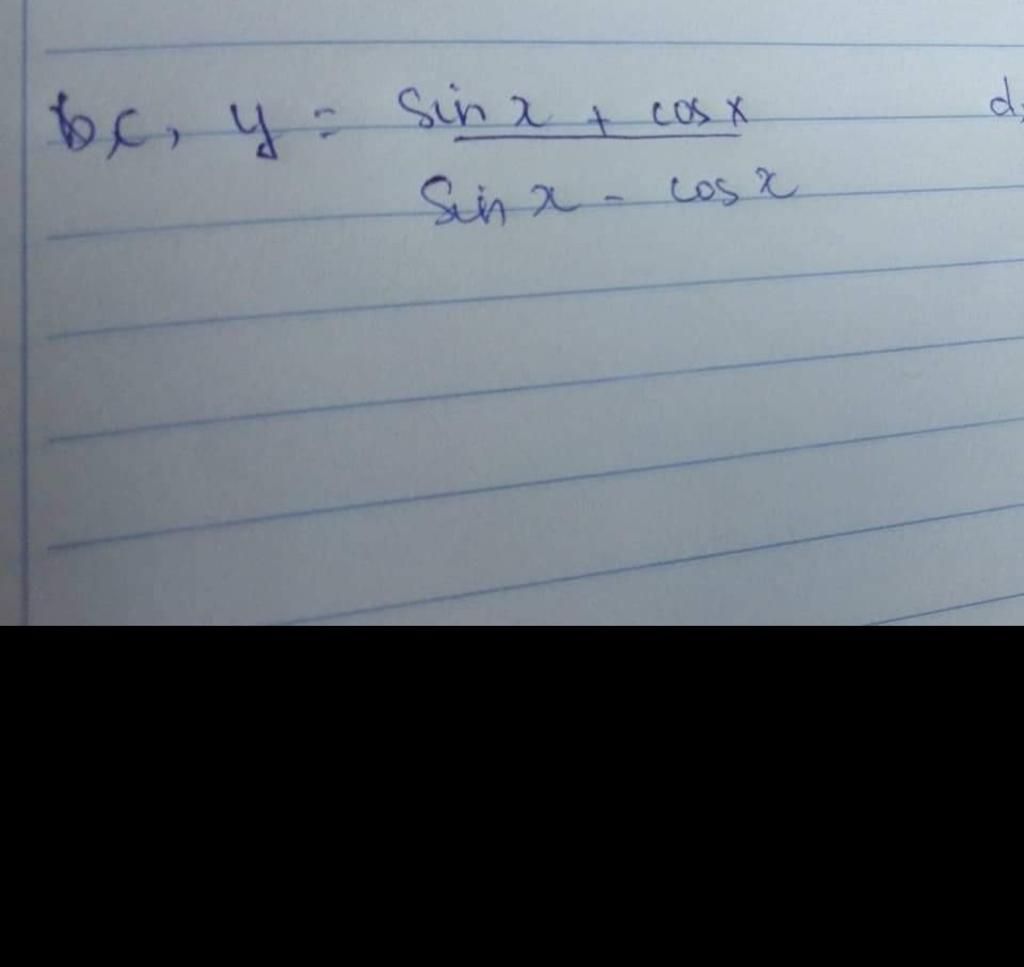 bc, y = sin x + cos x d,
sin x - cos x